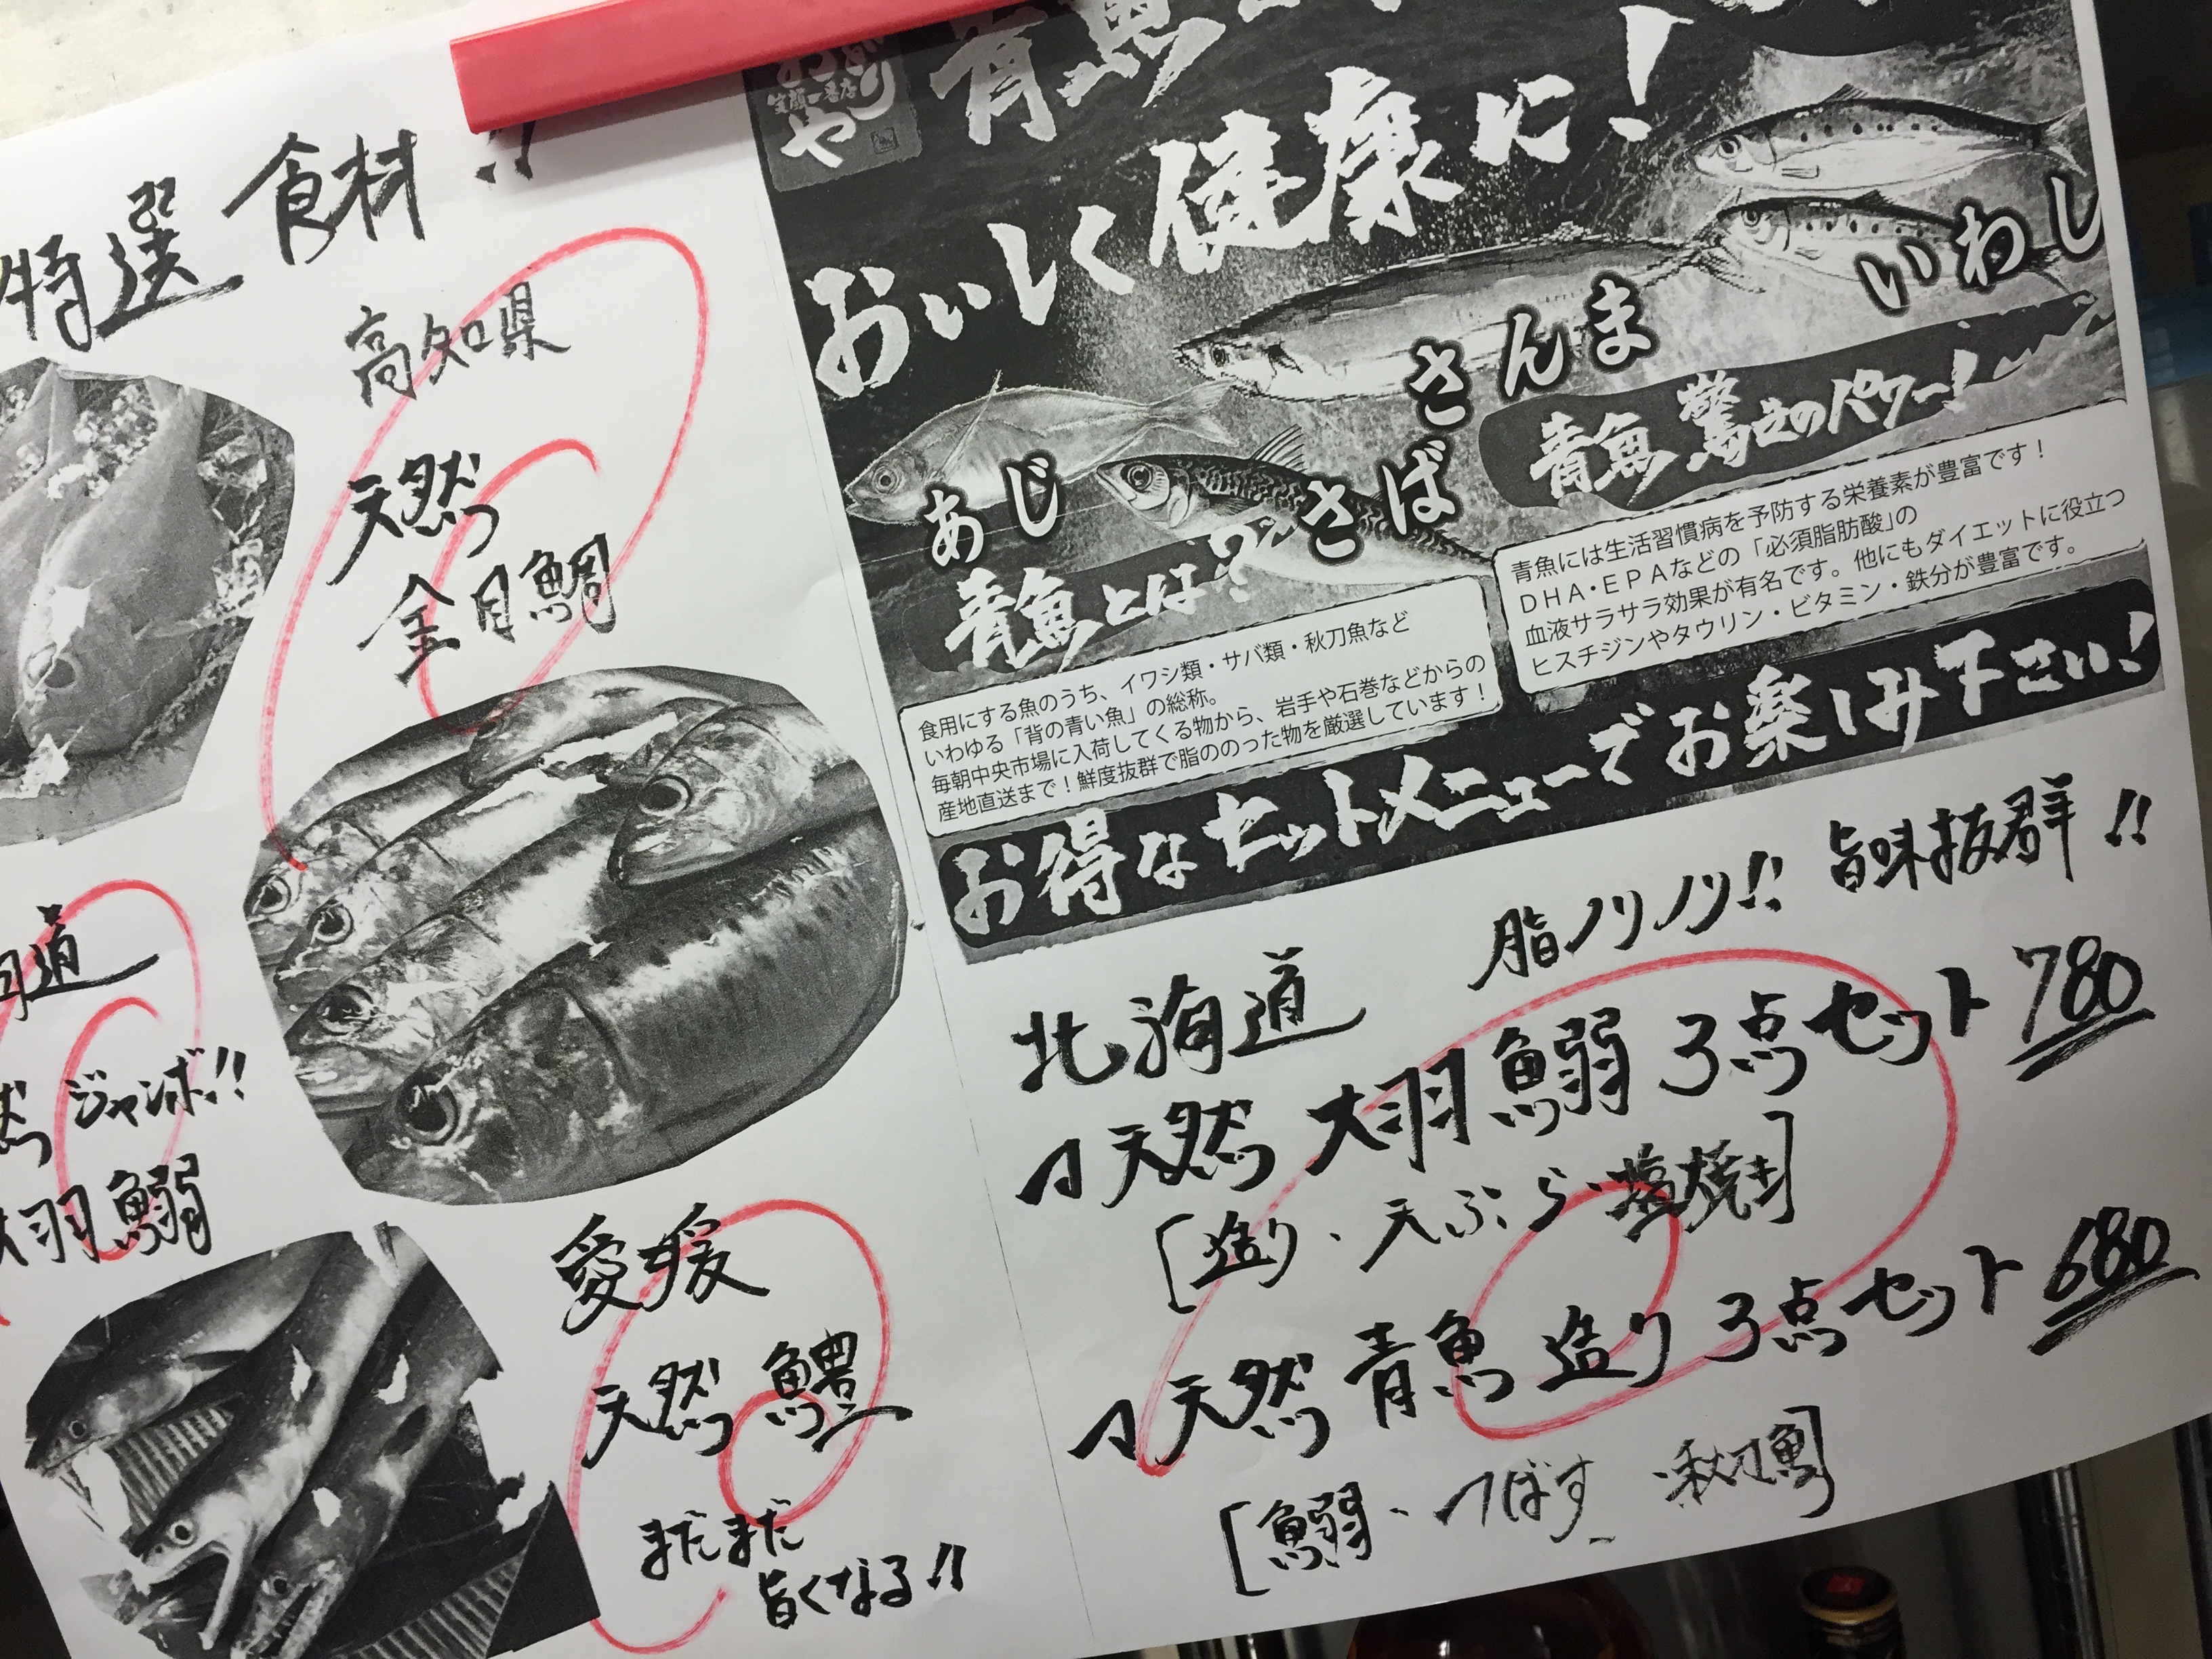 特選 食材 !!
高知県
天然
金目鯛
道
ジャンボ!!
大羽鰯
愛媛
天然 鱧
まだまだ
旨くなる!!
笑顔一番店
や
青魚
おいしく健康に!
いわし
さんま
さば
あじ
青魚とは?
食用にする魚のうち、イワシ類・サバ類・秋刀魚など
いわゆる「背の青い魚」の総称。
毎朝中央市場に入荷してくる物から、岩手や石巻などからの
産地直送まで!鮮度抜群で脂ののった物を厳選しています!
青魚 驚きのパワー!
青魚には生活習慣病を予防する栄養素が豊富です!
DHA・EPAなどの「必須脂肪酸」の
血液サラサラ効果が有名です。他にもダイエットに役立つ
ヒスチジンやタウリン・ビタミン・鉄分が豊富です。
お得なセットメニューでお楽しみ下さい!
脂ノリノリ!! 旨味抜群!!
北海道
天然 大羽鰯 3点セット 780
[造り・天ぷら・塩焼き]
天然 青魚 造り 3点セット 680
[鰯・つばす・秋刀魚]